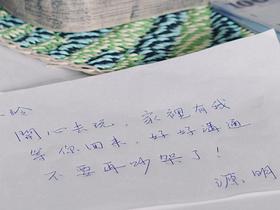 玲
開心去玩，家裡有我
等你回來，好好溝通
不要再吵架了！
源．明
100